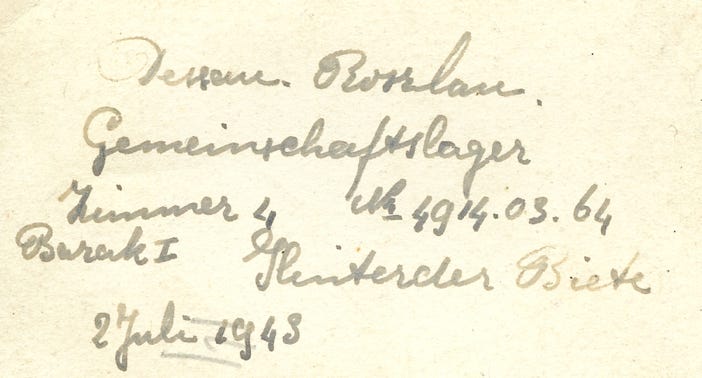 Dessau. Rosslau.
Gemeinschaftslager
Zimmer 4 No 4914.03.64
Barak I Hinterder Biete
2 Juli 1943